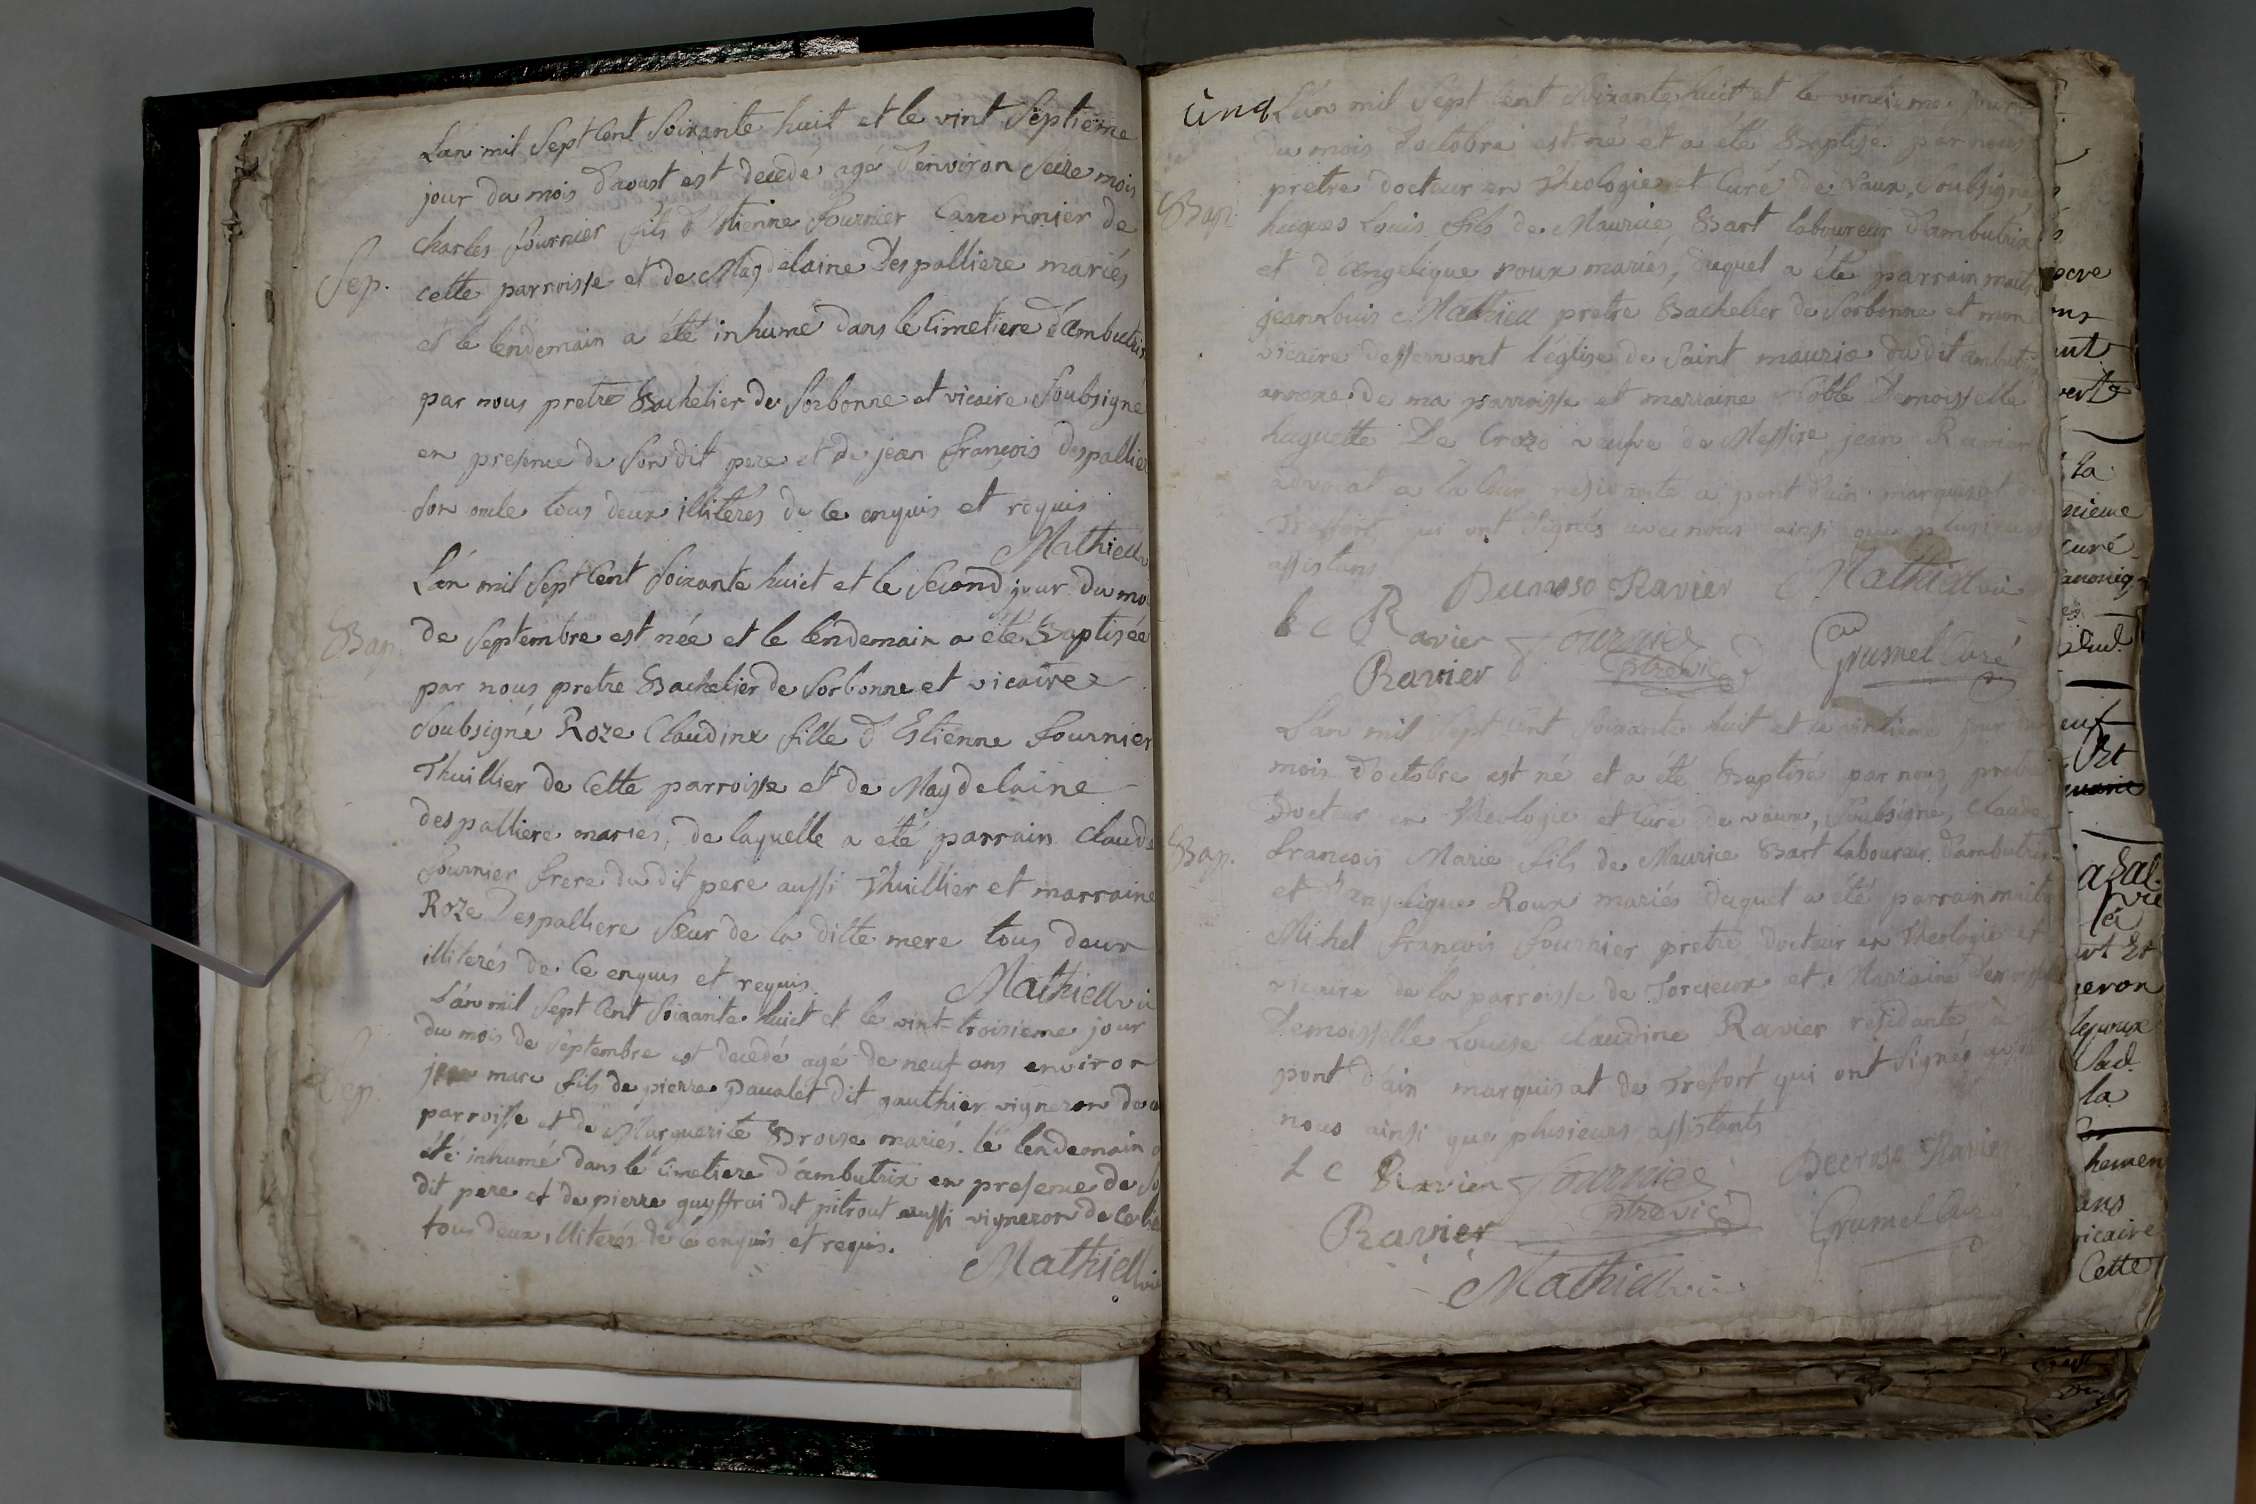 L'an mil Sept Cent Soixante huit et le vint Septieme
jour du mois d'aoust est decedé agé d'environ Seize mois
charles fournier fils d'Estienne fournier Carronnier de
Sep.
cette parroisse et de Magdelaine Despalliere mariés
et le lendemain a été inhumé dans le Cimetiere d'ambutrix
par nous pretre Bachelier de Sorbonne et vicaire Soubsigné
en presence de Son dit pere et de jean françois despallier
Son oncle tous deux illiterés de ce enquis et requis
Mathieu
L'an mil Sept Cent Soixante huict et le Second jour du moi
Bap.
de Septembre est née et le lendemain a été Baptisée
par nous pretre Bachelier de Sorbonne et vicaire
Soubsigné Roze Claudine fille d'Estienne fournier
Thuillier de Cette parroisse et de Magdelaine
despalliere mariés, de laquelle a été parrain Claude
fournier frere du dit pere aussi Thuillier et marraine
Roze Despalliere Sœur de la ditte mere tous deux
illiterés de Ce enquis et requis.
Mathieu vic
L'an mil Sept Cent Soixante huict et le vint-troisieme jour
du mois de Septembre est decedé agé de neuf ans environ
Sep.
marc fils de pierre Paualet dit gauthier vigneron de
parroisse et de Marguerite Brouse mariés. le lendemain a
été inhumé dans le Cimetiere d'ambutrix en presence de So
dit pere et de pierre guyffrai dit pitrout aussi vigneron de ce lie
tous deux illiterés de cé enquis et requis.
Mathieu vic
Cinq
L'an mil Sept Cent Soixante huict et le vintieme jour
du mois d'octobre est né et a été Baptisé par nous
pretre docteur en Theologie et Curé de Vaux, Soubsigné
Bap.
hugues Louis fils de Maurice Bart laboureur d'ambutrix
et d'Angelique roux mariés, duquel a été parrain maitr
jean Louis Mathieu pretre Bachelier de Sorbonne et mon
vicaire desservant l'église de Saint maurice du dit ambutrix
annexe de ma parroisse et marraine Noble Demoisselle
huguette De Crozo veufve de Messire jean Ravier
advocat a la Cour residante a pont d'ain marquisat de
Treffort qui ont Signés avec nous ainsi que plusieurs
assistans
Ducroso Ravier Mathieu vic
L C Ravier Fournier
Ravier ptre vic Grumel Curé
L'an mil Sept Cent Soixante huit et le vintieme jour du
mois d'octobre est né et a été Baptisé par nous, pretre
Docteur en Theologie et Curé de vaux, Soubsigné, Claude
Bap.
françois Marie fils de Maurice Bart laboureur d'ambutrix
et d'angelique Roux mariés duquel a été parrain maitre
Michel françois fournier pretre docteur en Theologie et
vicaire de la parroisse de Torcieux et Marraine
Demoisselle Louise Claudine Ravier residante à
pont d'ain marquisat de Treffort qui ont Signés avec
nous ainsi que plusieurs assistants
L C Ravier Fournier Decroso Ravier
Ravier ptre vic Grumel Curé
Mathieu vic